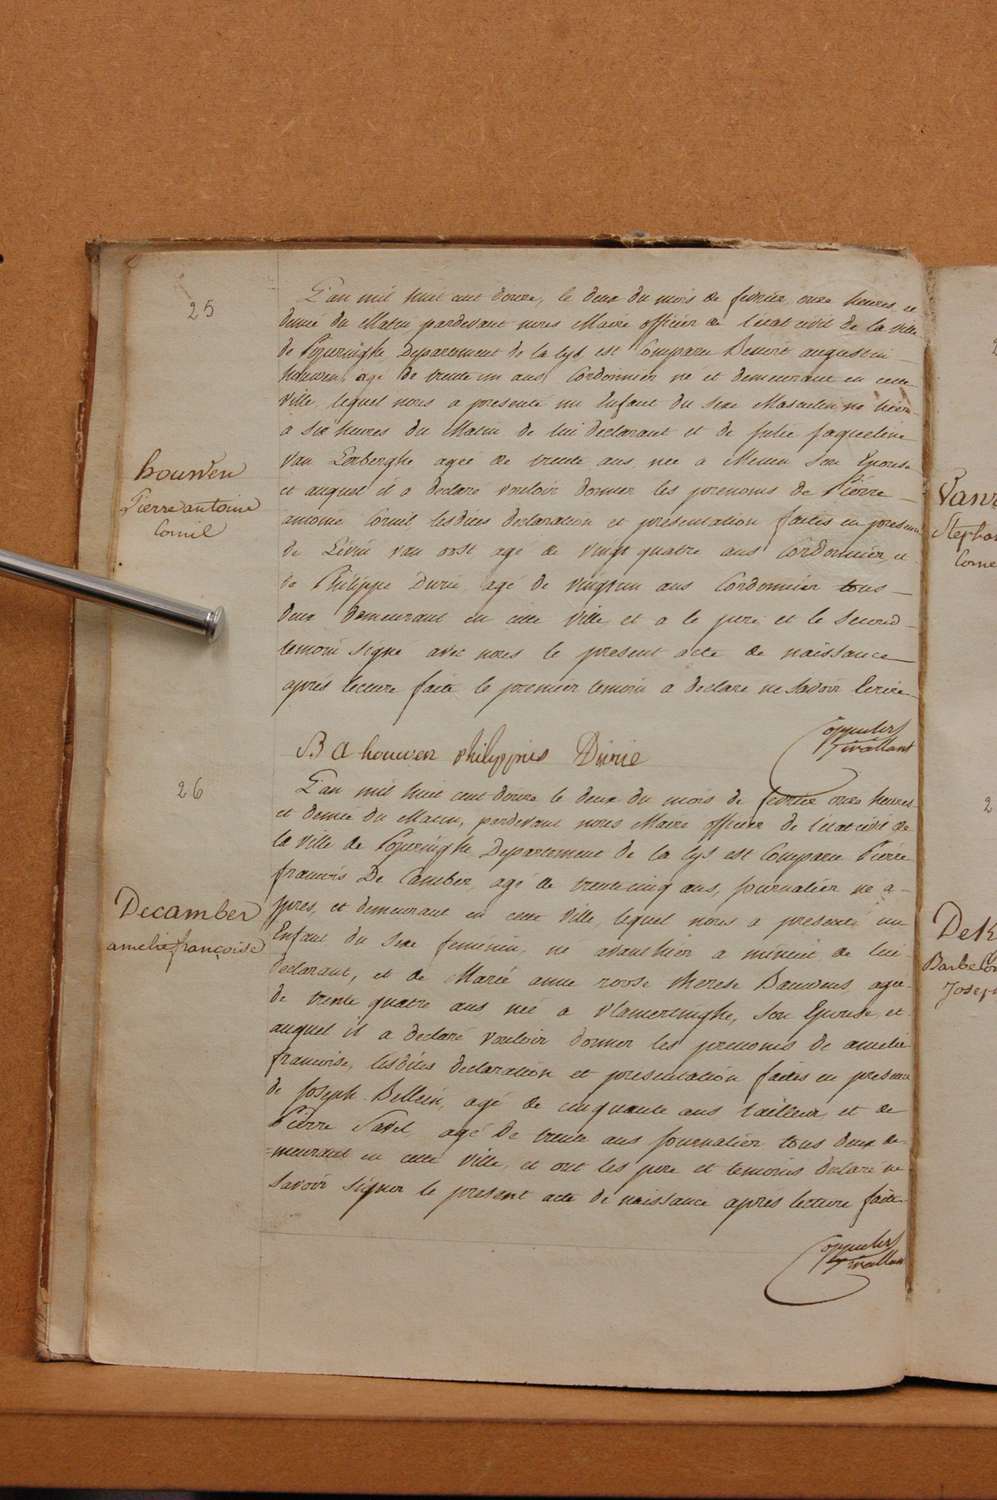 25
L'an mil huit cent douze, le deux du mois de fevrier onze heures et
demie du Matin pardevant nous Maire officier de l'état civil de la ville
de Poperinghe Departement de la Lys est Comparu Benoit augustin
houwen, agé de trente un ans, Cordonnier né et demeurant en cette
Ville, lequel nous a presenté un Enfant du sexe Masculin, né hier
a six heures du Matin de lui declarant et de Julie Jaqueline
Van agée de trente ans, née a Menin son Epouse
et auquel il a declaré vouloir donner les prenoms de Pierre
antoine Cornil lesdites declaration et presentation faites en presence
de Livin van agé de vingt quatre ans Cordonnier, et
de Philippe Durie agé de vingtun ans Cordonnier tous
deux demeurant en cette Ville, et a le pere et le second
temoin signé avec nous le present acte de naissance
après lecture faite le premier temoin a declaré ne savoir Ecrire
houwen
Pierre antoine
Cornil
B A houwen philippus Durie
26
L'an mil huit cent douze le deux du mois de fevrier onze heures
et demie du Matin, pardevant nous Maire officier de l'état civil de
la ville de Poperinghe Departement de la Lys est Comparu Pierre
francois De Camber, agé de trente cinq ans, journalier né a
Ypres, et demeurant en cette Ville, lequel nous a presenté un
Enfant du sexe feminin, né avanthier a minuit de lui
declarant, et de Marie anne therese agée
de trente quatre ans née a Vlamertinghe, son Epouse, et
auquel il a declaré vouloir donner les prenoms de amelie
francoise, lesdites declaration et presentation faites en presence
de Joseph Bellein, agé de cinquante ans tailleur et de
Pierre agé de trente ans journalier tous deux de=
=meurant en cette Ville, et ont les pere et temoins declaré ne
savoir signer le present acte de naissance après lecture faite
Decamber
amelie françoise